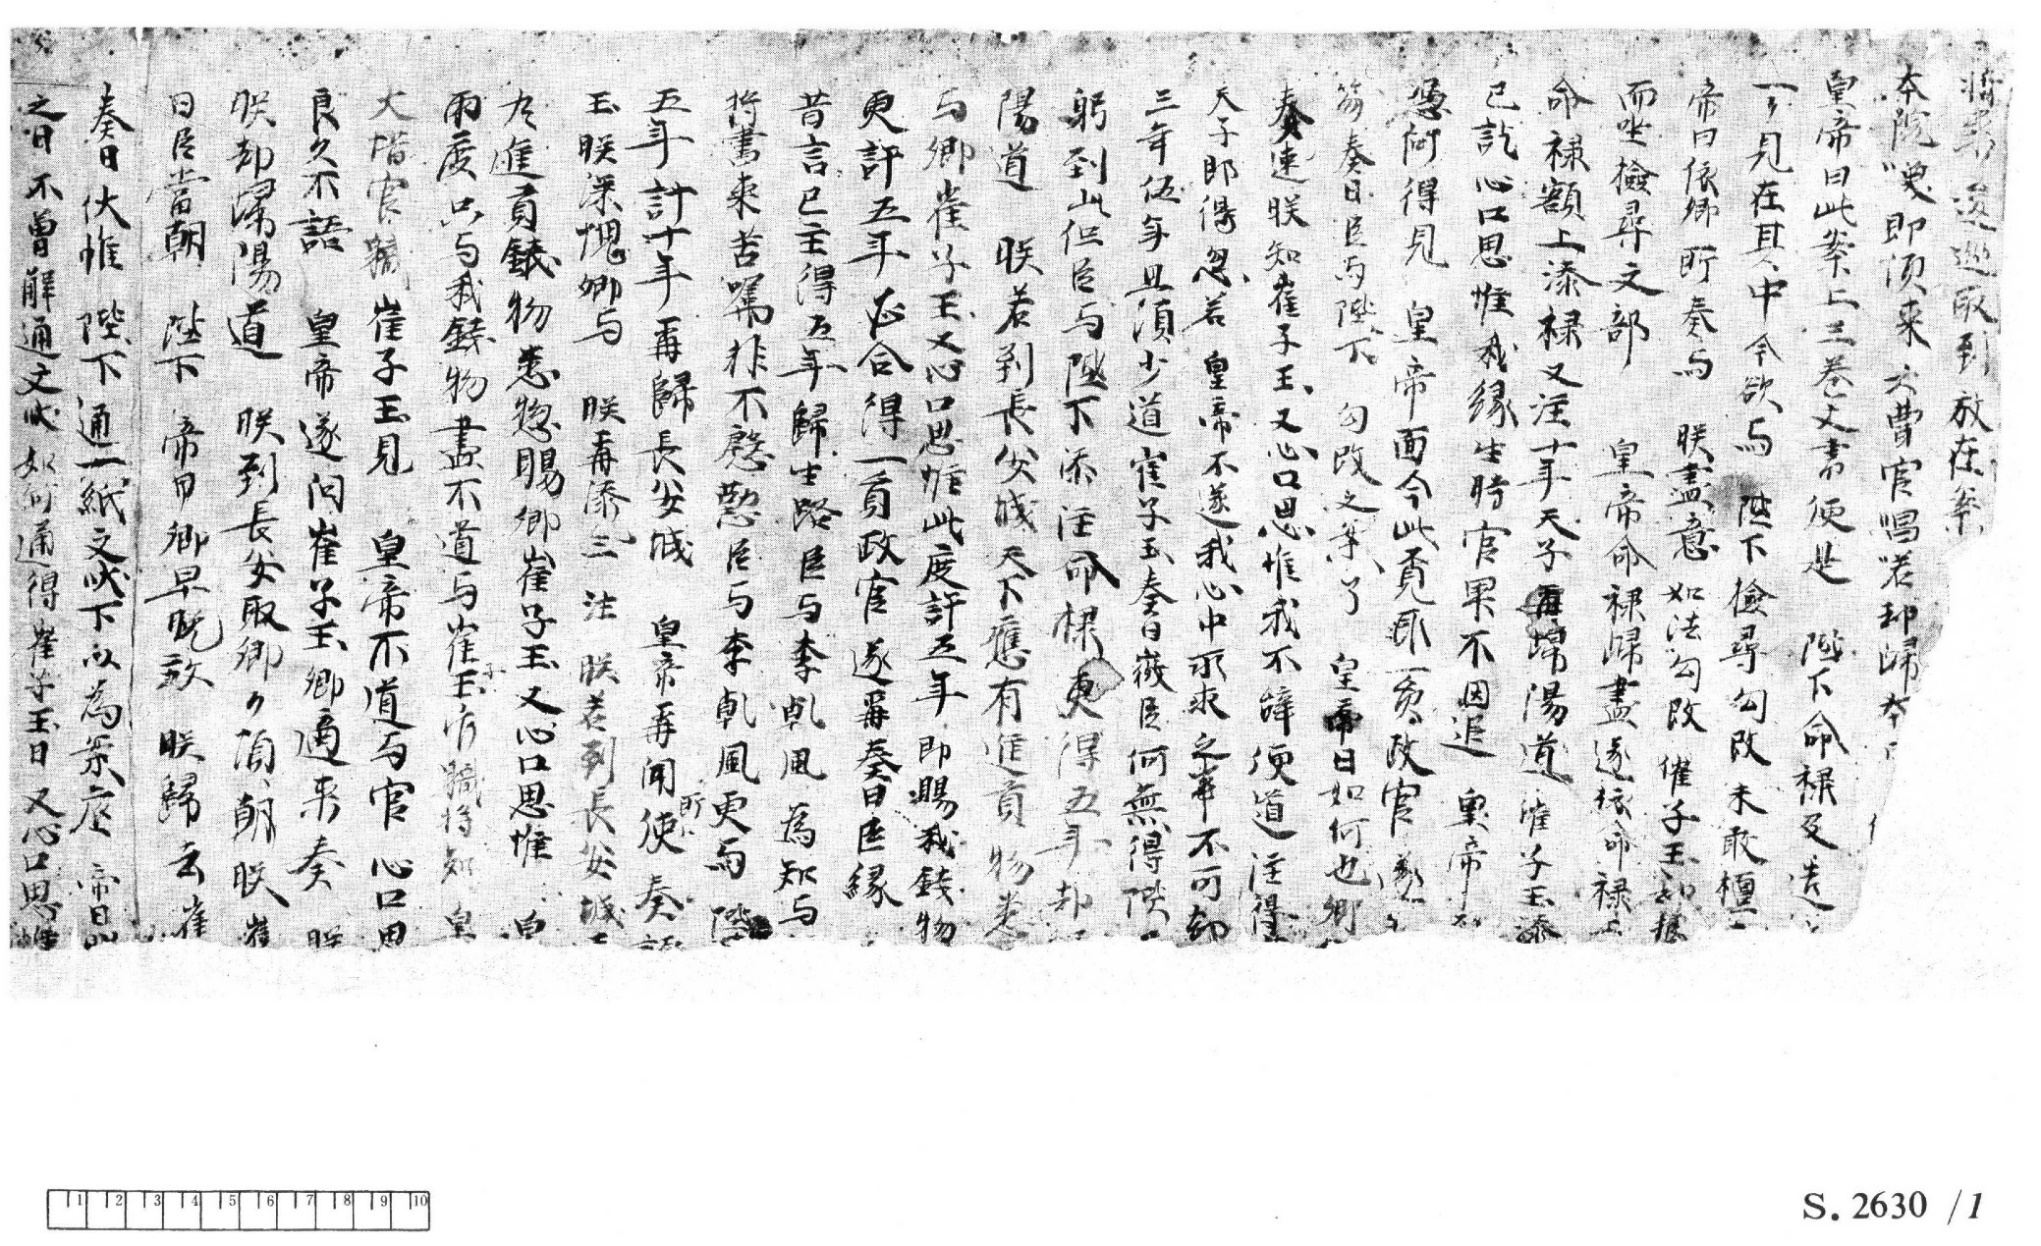 將來逡巡取到放在案
本院喚即須來六曹官唱喏却歸本
皇帝曰此案上三卷文書便是 陛下命祿及造
一一見在其中今欲与 陛下檢尋勾改未敢檀
帝曰依卿所奏与 朕盡意如法勾改催子玉
而坐檢尋文部 皇帝命祿歸盡遂依命祿上
命祿額上添祿又注十年天子再歸陽道崔子玉添
已訖心口思惟我緣生時官卑不因追 皇帝
憑何得見 皇帝面今此覓取一員政官
奏曰臣与陛下勾改之案了 皇帝曰如何也卿
奏速朕知崔子玉又心口思惟我不辞便道注得
天子即得忽若皇帝不遂我心中所求之事不可却
三年伍年且須少道崔子玉奏曰微臣何無得陛
躬到此但臣与陛下添注命祿更得五年却
陽道 朕若到長安城天下應有進貢物悉
与卿崔子玉又心口思惟此度許五年即賜我錢物
更許五年必合得一員政官遂再奏曰臣緣
昔言已主得五年歸生路臣与李乹風為知与
將書來苦囑非不慇懃臣与李乹風更与陛
五年計十年再歸長安城 皇帝再聞所使奏
玉朕深愧卿与 朕再添三注 朕若到長安城
尽進貢錢物悉惣賜卿崔子玉又心口思惟
兩度只与我錢物盡不道与崔子玉官職將知皇
大惜官職崔子玉見 皇帝不道与官心口思
良久不語 皇帝遂问崔子玉卿適來奏 朕
朕却歸陽道 朕到長安取卿々須朝朕崔
曰臣當朝 陛下 帝曰卿早晚放 朕歸去崔
奏曰伏惟 陛下通一紙文狀下以為案底 帝曰
之日不曾解通文狀如何通得崔子玉曰又心口思惟
1 2 3 4 5 6 7 8 9 10
S. 2630 /1